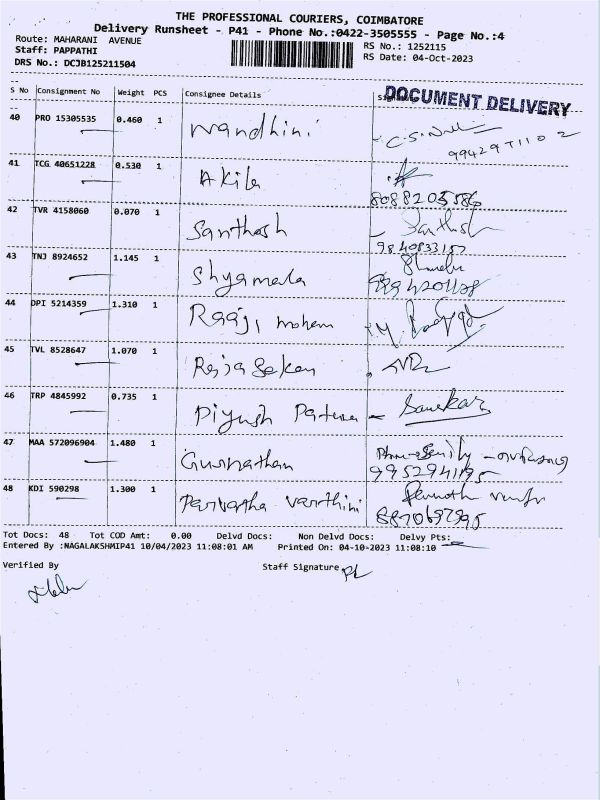 THE PROFESSIONAL COURIERS, COIMBATORE
Delivery Runsheet - P41 - Phone No.:0422-3505555 - Page No.:4
Route: MAHARANI AVENUE
RS No.: 1252115
Staff: PAPPATHI
RS Date: 04-Oct-2023
DRS No.: DCJB125211504
S No Consignment No Weight PCS Consignee Details
DOCUMENT DELIVERY
40 PRO 15305535 0.460 1 Nandhini
41 TCG 40651228 0.530 1 Akila
42 TVR 4158060 0.070 1 Santhosh
9840833157
43 TNJ 8924652 1.145 1 Shyamala
44 DPI 5214359 1.310 1 Raaji mohan
45 TVL 8528647 1.070 1 Rajasekan
46 TRP 4845992 0.735 1 Piyush Sankar
47 MAA 572096904 1.480 1 Gurunathan
9952941195
48 KDI 590298 1.300 1 Parvatha varthini
8870697995
Tot Docs: 48 Tot COD Amt: 0.00 Delvd Docs: Non Delvd Docs: Delvy Pts:
Entered By :NAGALAKSHMIP41 10/04/2023 11:08:01 AM Printed On: 04-10-2023 11:08:10
Verified By
Staff Signature